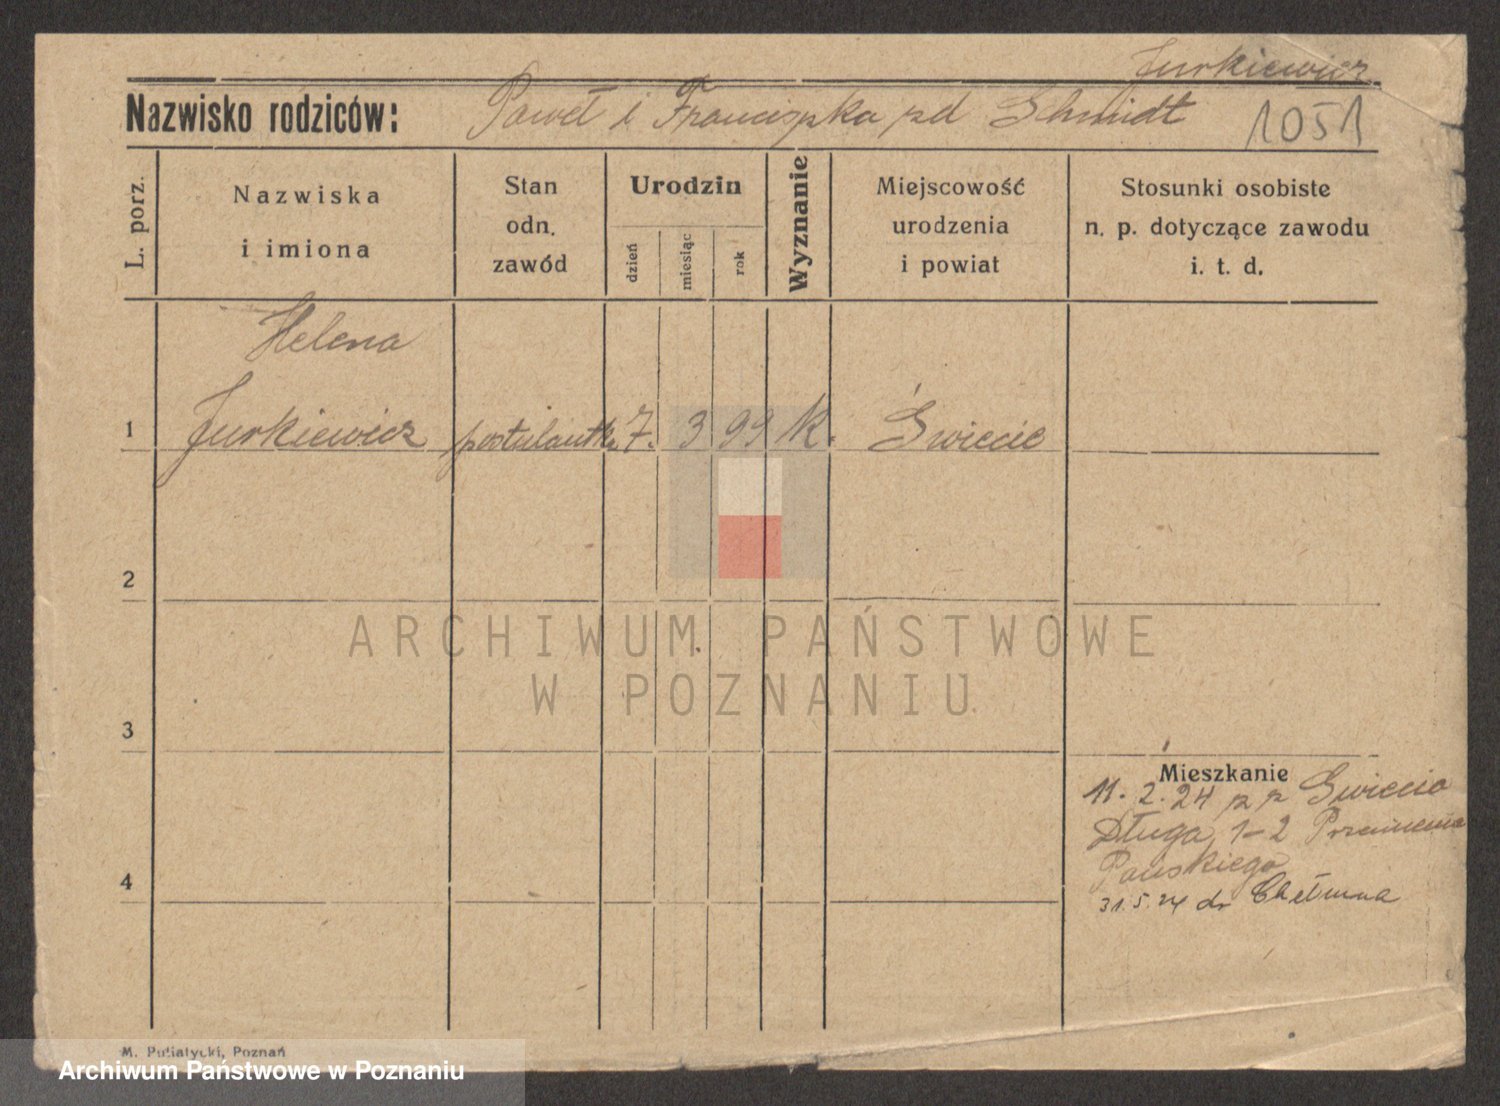 Jurkiewicz
Nazwisko rodziców: Paweł i Franciszka zd Schmidt 1051
L. porz.
Nazwiska
i imiona
Stan
odn.
zawód
Urodzin
dzień
miesiąc
rok
Wyznanie
Miejscowość
urodzenia
i powiat
Stosunki osobiste
n. p. dotyczące zawodu
i. t. d.
Helena
1 Jurkiewicz postulantka 7. 3 99 k. Świecie
2
ARCHIWUM PAŃSTWOWE
W POZNANIU
3
Mieszkanie
11. 2. 24 z Świecia
Długa 1-2 Przemienia
Pańskiego
4
31. 5. 24 do Chełmna
M. Putiatycki, Poznań
Archiwum Państwowe w Poznaniu